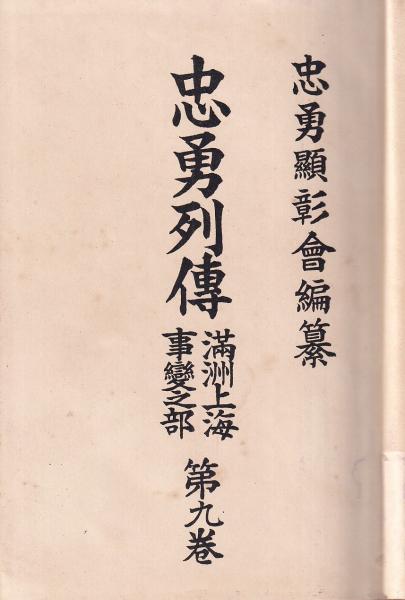 忠勇顯彰會編纂
忠勇列傳
滿洲上海
事變之部
第九卷